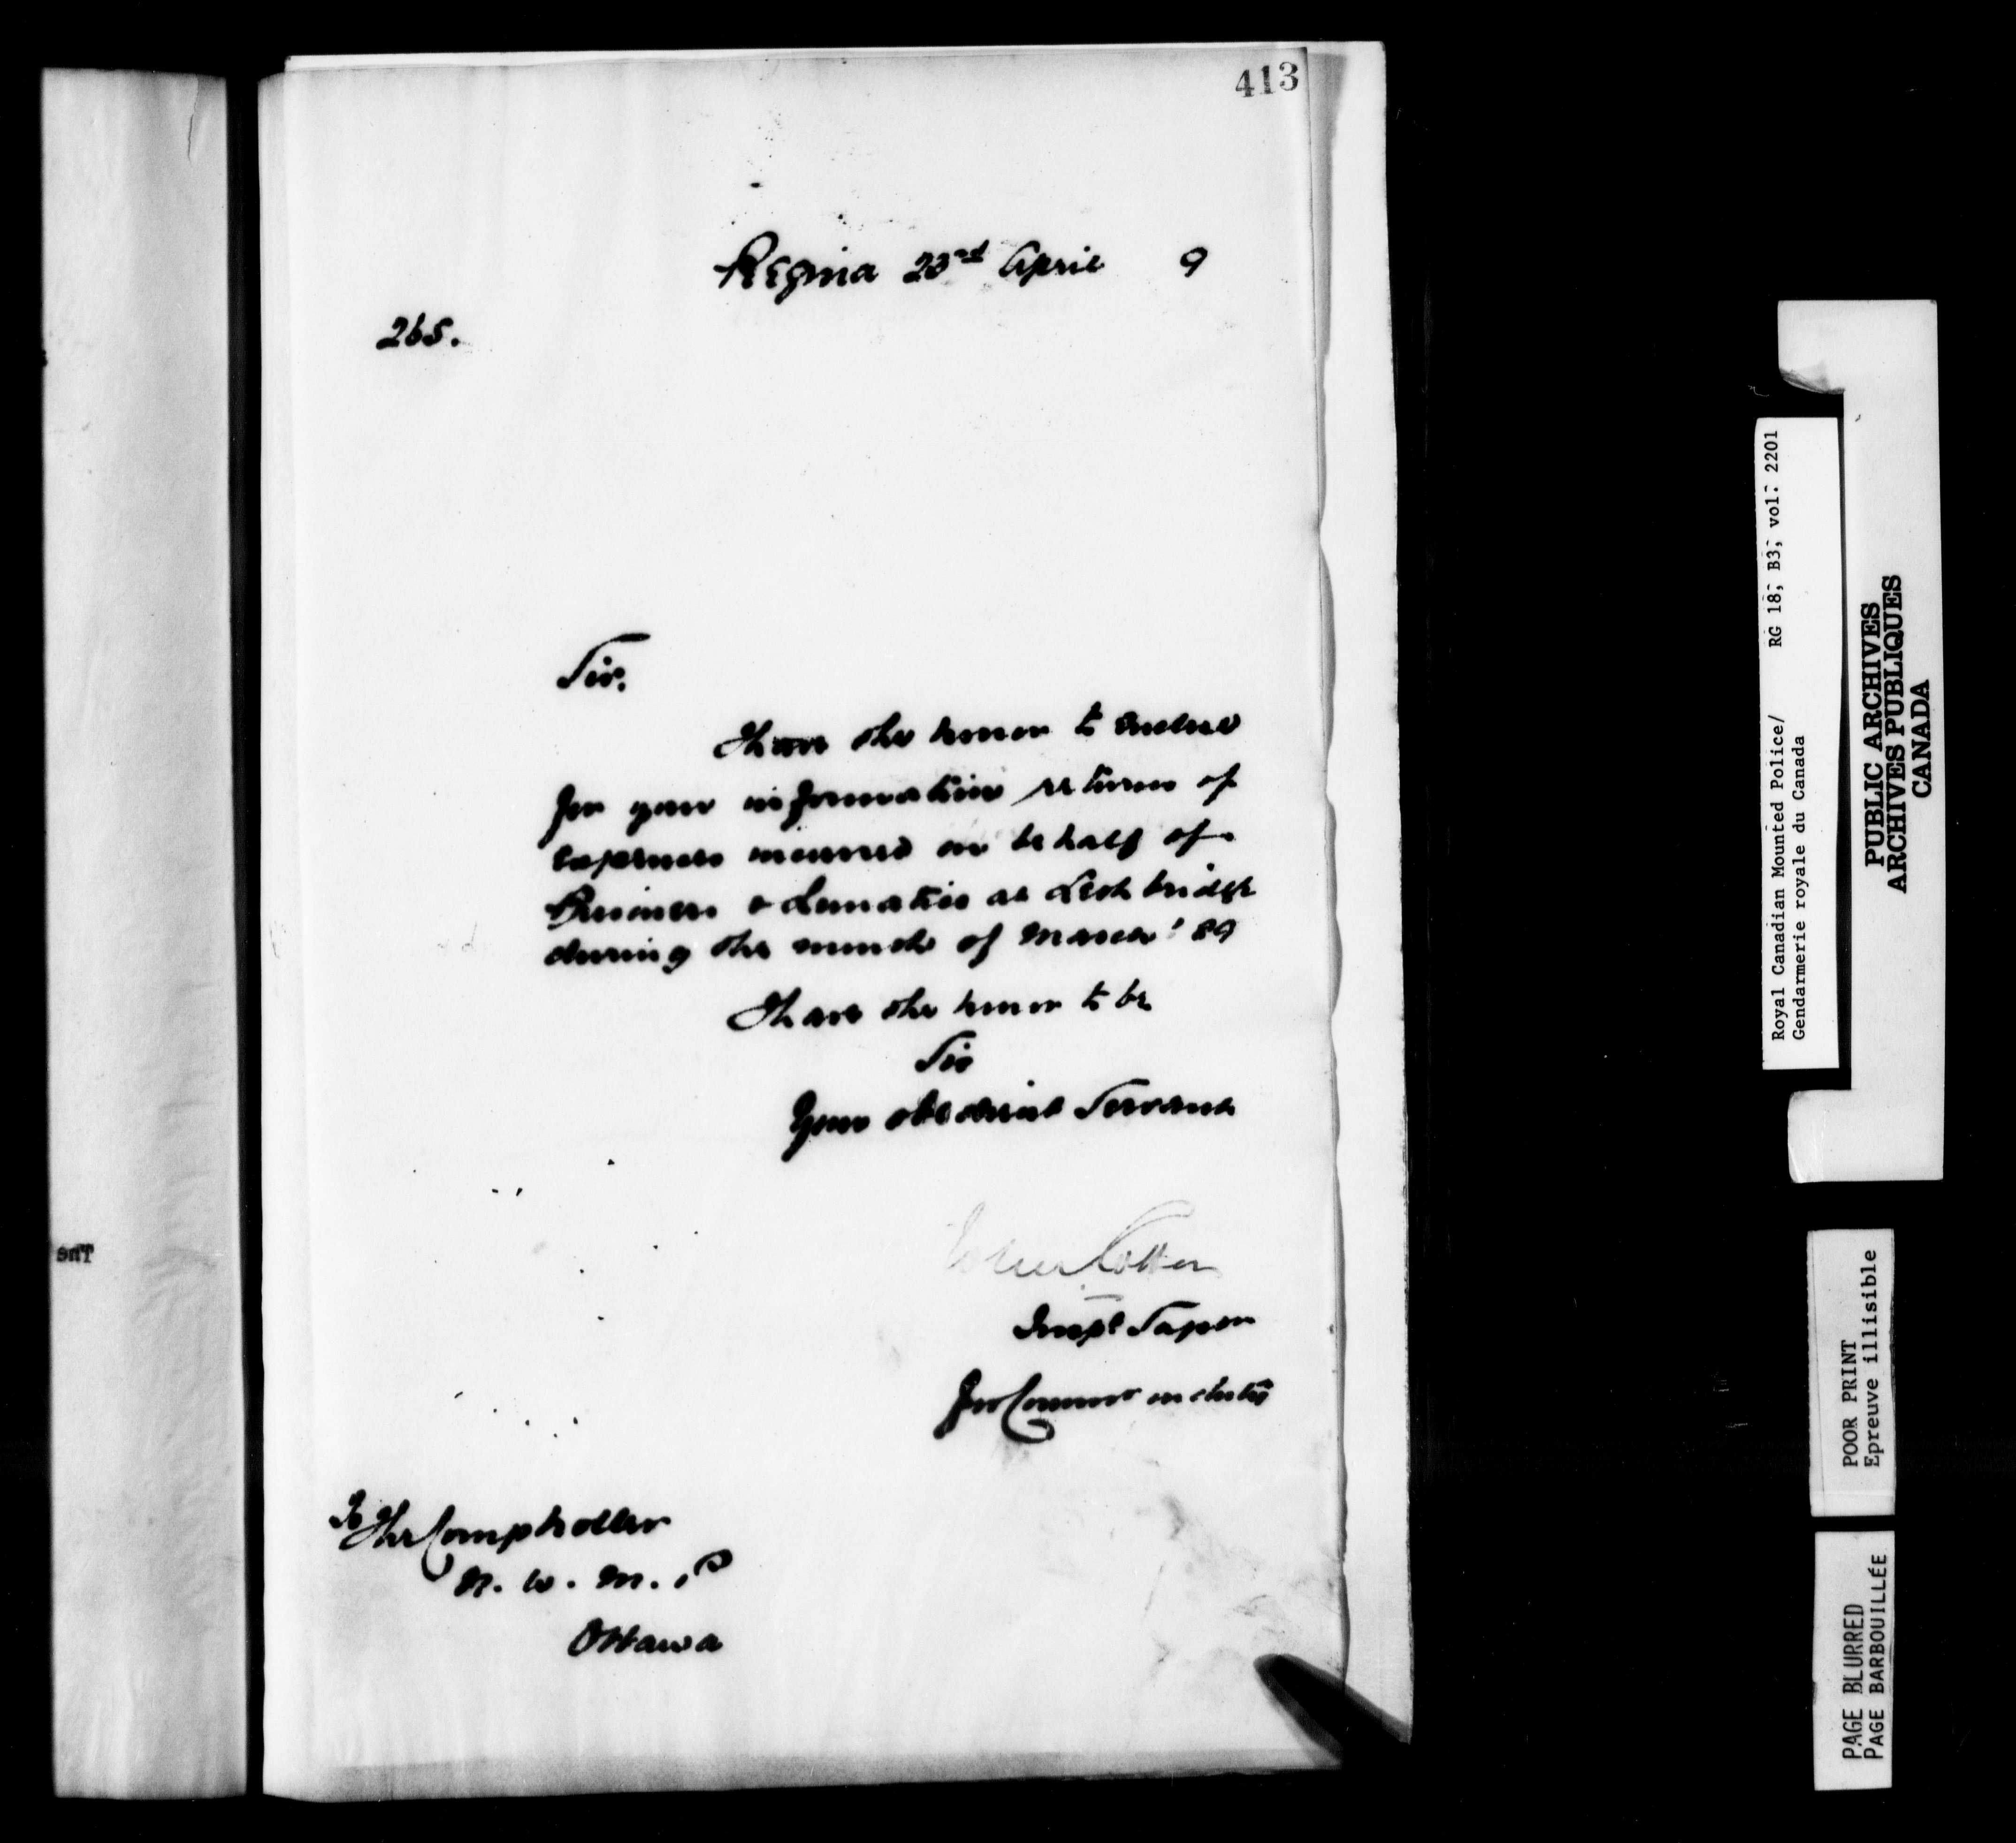 413
Regina 23rd April 9
265.
Sir.
I have the honor to enclose
for your information returns of
expenses incurred on behalf of
Prisoners & Lunatics at Lethbridge
during the month of March '89
I have the honor to be
Sir
Your obedient Servant
John Cotton
Inspt Supern
for Commr on duty
To The Comptroller
N. W. M. P
Ottawa
The
Royal Canadian Mounted Police/ RG 18, B3, vol. 2201
Gendarmerie royale du Canada
PUBLIC ARCHIVES
ARCHIVES PUBLIQUES
CANADA
POOR PRINT
Epreuve illisible
PAGE BLURRED
PAGE BARBOUILLÉE